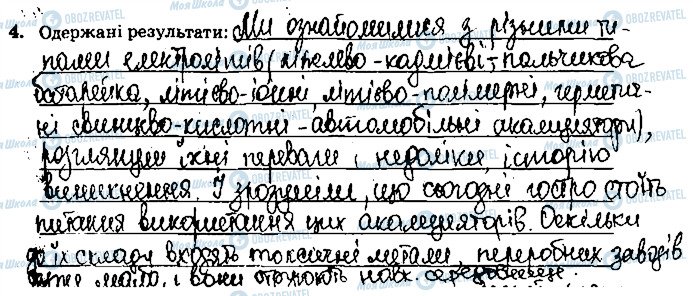 4. Одержані результати: Ми ознайомилися з різними ти-
пами електролітів (нікелево-кадмієві - пальчикова
батарейка, літієво-іонні, літієво-полімерні, гермети-
ні свинцево-кислотні - автомобільні акамулятори),
розглянули їхні переваги і недоліки, історію
виникнення. І зрозуміли, що сьогодні гостро стоїть
питання використання цих акамуляторів. Оскільки
до їх складу входять токсичні метали, переробних заводів
дуже мало, і вони отруюють навк. середовище.